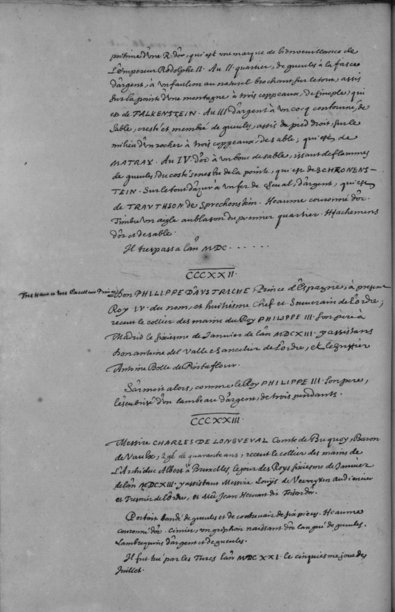 poitrine d'une R. d'or, qui est une marque de bienveuillance de
L'Empereur Rodolphe II. Au II. quartier, de gueules à la fasce
d'argent, à un faulcon au naturel brochant sur le tout, assis
sur la pointe d'une montagne à trois coppeaux, de sinople, qui
est de FALKENSTEIN. Au III. d'argent à un cocq contourné, de
sable, cresté et membré de gueules, assis du pied droit sur le
milieu d'un rocher à trois coppeaux, de sable, qui est de
MATRAY. Au IV. d'or à un bouc de sable, issant de flammes
de gueules, du costé senestre de la pointe, qui est de SCHRONENS-
TEIN. Sur le tout d'azur à un fer de cheval, d'argent, qui est
de TRAUTHSON de Sprechenstein. Heaume couronné d'or.
Timbre un aigle au blason du premier quartier. Hachemens
d'or et de sable.
Il trespassa l'an MDC . . . . . .
CCCXXII.
Don PHILIPPE D'AUSTRICHE, Prince d'Espagne, à present
Roy IV. du nom, et huitiesme Chef et Souverain de l'ordre,
receut le collier des mains du Roy PHILIPPE III. son pere à
Madrid le sixiesme de Janvier de l'an MDCXIII. y assistans
Don Antoine del Valle Chancelier de l'ordre, et le Greffier
Antoine Bolle de
S'armoit alors, comme le Roy PHILIPPE III. son pere,
l'escu brisé d'un lambeau d'argent, de trois pendants.
CCCXXIII.
Messire CHARLES DE LONGUEVAL Comte de Buquoy, Baron
de Vaulx, agé de quarante ans, receut le collier des mains de
L'Archiduc Albert à Bruxelles, le jour des Roys sixiesme de Janvier
de l'an MDCXIII. y assistans Messire Louys de Verreyken audiencier
et Tresorier de l'ordre, et
Portoit bandé de gueules et de contrevair de six pieces. Heaume
couronné d'or. Cimier, un griffon naissant d'or langué de gueules.
Lambrequins d'argent et de gueules.
Il fut tué par les Turcs l'an MDCXXI. le cinquiesme jour de
Juillet.